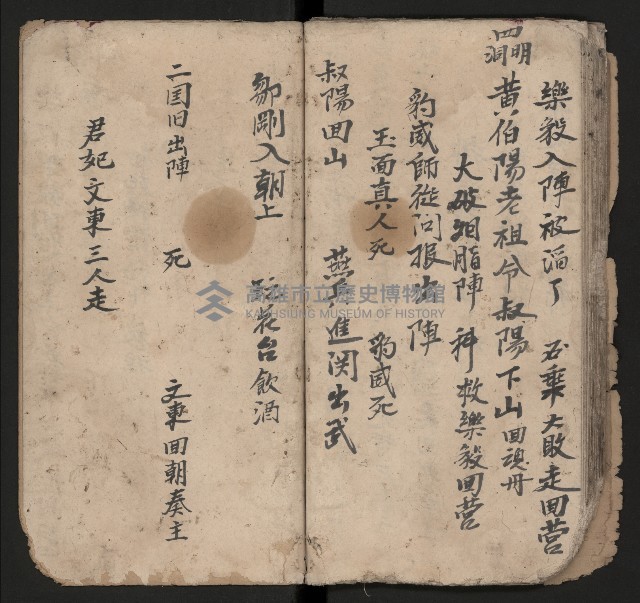 樂毅入陣被滔了 石乘大敗走回营
四明洞 黃伯陽老祖令叔陽下山回魂丹
大破胭脂陣 科救樂毅回营
豹威師徒问报出陣
玉面真人死 豹威死
叔陽回山 燕 進関出武
邹剛入朝上 花台飲酒
二国旧出陣 死 文東回朝奏主
君妃文東三人走
高雄市立歷史博物館
KAOHSIUNG MUSEUM OF HISTORY